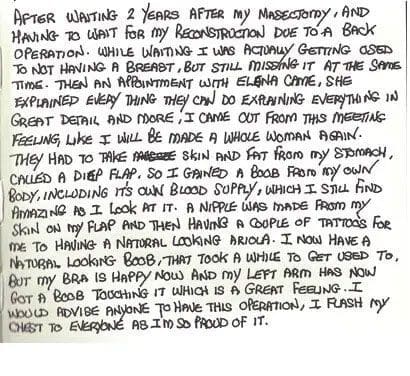 AFTER WAITING 2 YEARS AFTER MY MASECTOMY, AND
HAVING TO WAIT FOR MY RECONSTRUCTION DUE TO A BACK
OPERATION. WHILE WAITING I WAS ACTUALLY GETTING USED
TO NOT HAVING A BREAST, BUT STILL MISSING IT AT THE SAME
TIME. THEN AN APPOINTMENT WITH ELENA CAME, SHE
EXPLAINED EVERY THING THEY CAN DO EXPLAINING EVERYTHING IN
GREAT DETAIL AND MORE, I CAME OUT FROM THIS MEETING
FEELING, LIKE I WILL BE MADE A WHOLE WOMAN AGAIN.
THEY HAD TO TAKE SKIN AND FAT FROM MY STOMACH,
CALLED A DIEP FLAP. SO I GAINED A BOOB FROM MY OWN
BODY, INCLUDING IT'S OWN BLOOD SUPPLY, WHICH I STILL FIND
AMAZING AS I LOOK AT IT. A NIPPLE WAS MADE FROM MY
SKIN ON MY FLAP AND THEN HAVING A COUPLE OF TATTOOS FOR
ME TO HAVING A NATURAL LOOKING ARIOLA. I NOW HAVE A
NATURAL LOOKING BOOB, THAT TOOK A WHILE TO GET USED TO,
BUT MY BRA IS HAPPY NOW AND MY LEFT ARM HAS NOW
GOT A BOOB TOUCHING IT WHICH IS A GREAT FEELING. I
WOULD ADVISE ANYONE TO HAVE THIS OPERATION, I FLASH MY
CHEST TO EVERYONE AS I'M SO PROUD OF IT.